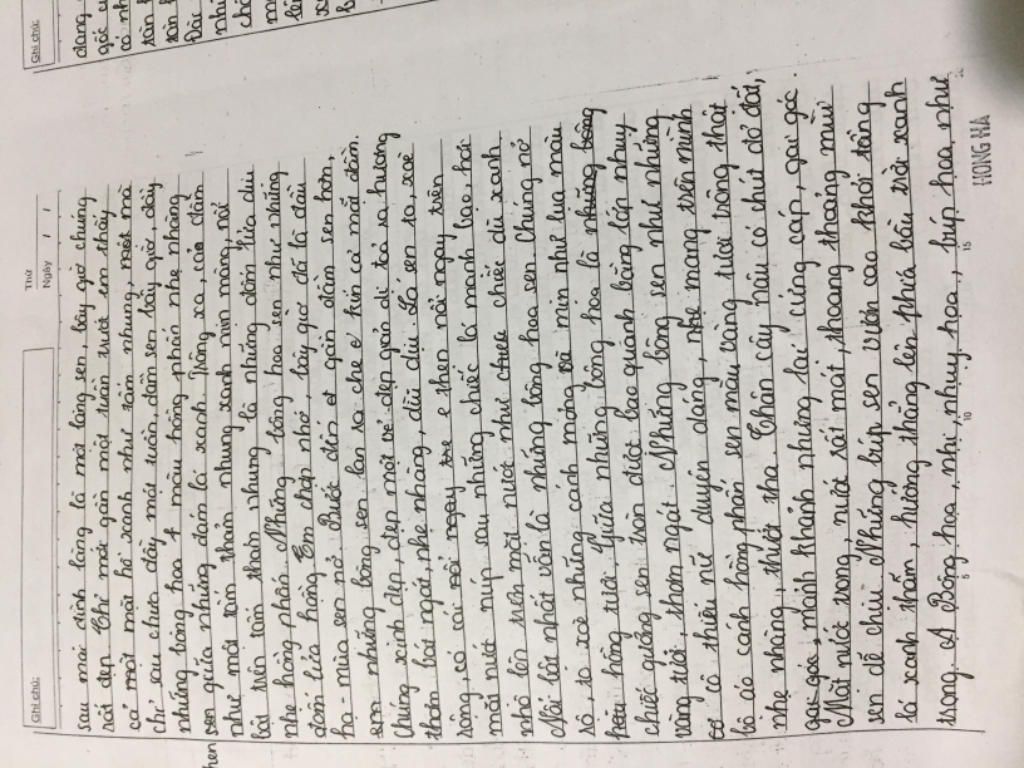 Ghi chú:
Thứ
Ngày / /
sau mái đình làng là một làng sen, bây giờ chúng
rất đẹp. Chỉ mới gần một tuần trước em thấy
cả mặt hồ xanh như tấm nhung, một mà
chỉ sau chưa đầy một tuần, đầm sen bây giờ, đầy
những bông hoa màu hồng phấn nhẹ nhàng
hen sen giữa những đám lá xanh. Trông xa, cả đầm
như một tấm thảm nhung xanh mịn màng, nổi
bật trên tấm thảm nhung là những đốm lửa dịu
nhẹ hồng phấn. Những bông hoa sen như những
đốm lửa hồng. Em chợt nhớ, bây giờ đã là đầu
hạ - mùa sen nở. Bước đến gần đầm sen hơn,
em những bông sen lan ra che kín cả mặt đầm.
Chúng xinh đẹp, đẹp một vẻ đẹp giản dị toả ra hương
thơm bát ngát, nhẹ nhàng, dìu dịu. Lá sen to, xoè
rộng, có cái nổi ngay e then nổi ngay trên
mặt nước núp sau những chiếc lá mạnh bạo, hơi
nhô lên trên mặt nước như chiếc dù xanh.
Nổi bật nhất vẫn là những bông hoa sen. Chúng nở
rộ, to xoè những cánh mỏng và mịn như lụa màu
hồng tươi. Giữa những bông hoa là những bông
chiếc gương sen tròn được bao quanh bằng lớp nhuỵ
vàng tươi, thơm ngát. Những bông sen như những
cô thiếu nữ duyên dáng, nhẹ mang trên mình
bộ áo cánh hồng phấn sen màu vàng tươi trông thật
nhẹ nhàng, thướt tha. Thân cây nâu có chút đỏ đất,
gai góc, mảnh khảnh nhưng lại cứng cáp, gai góc.
Mặt nước trong, nước rất mát, thoang thoảng mùi
sen dễ chịu. Những búp sen vươn cao khỏi tầng
lá xanh thẳm, hướng thẳng lên phía bầu trời xanh
trong. A Bông hoa, nhị, nhuỵ hoa, búp hoa như
5 10 15 20
HONG HA
Ghi chú: